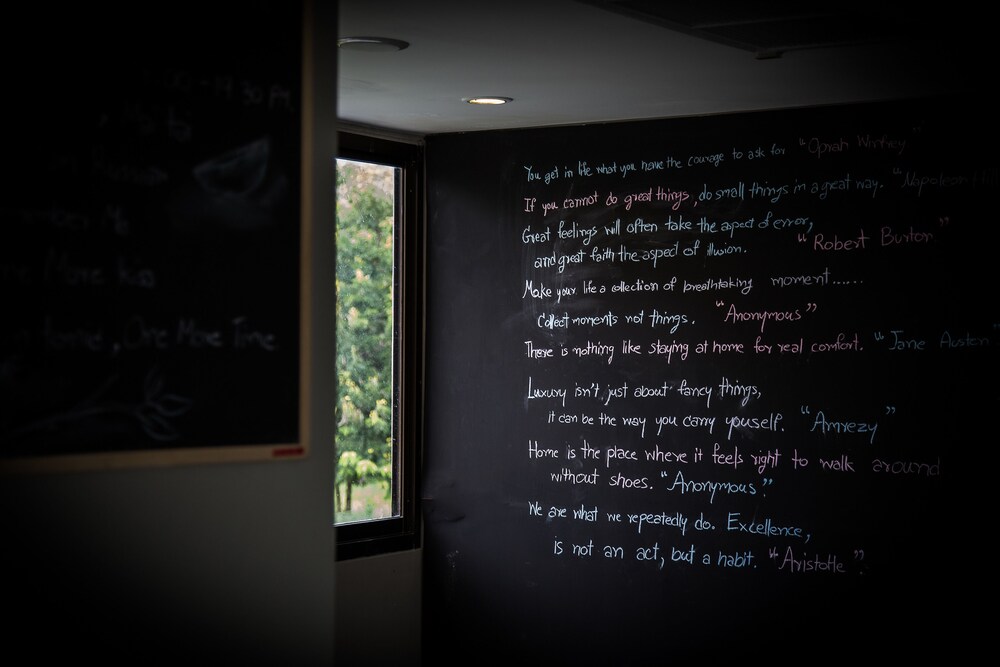 30 PM
One More Time
You get in life what you have the courage to ask for "Oprah Winfrey"
If you cannot do great things, do small things in a great way. "Napoleon
Great feelings will often take the aspect of error,
and great faith the aspect of illusion. "Robert Burton"
Make your life a collection of breathtaking moment......
Collect moments not things. "Anonymous"
There is nothing like staying at home for real comfort. "Jane Austen
Luxury isn't just about fancy things,
it can be the way you carry youself. "Amrezy"
Home is the place where it feels right to walk around
without shoes. "Anonymous"
We are what we repeatedly do. Excellence,
is not an act, but a habit. "Aristotle"